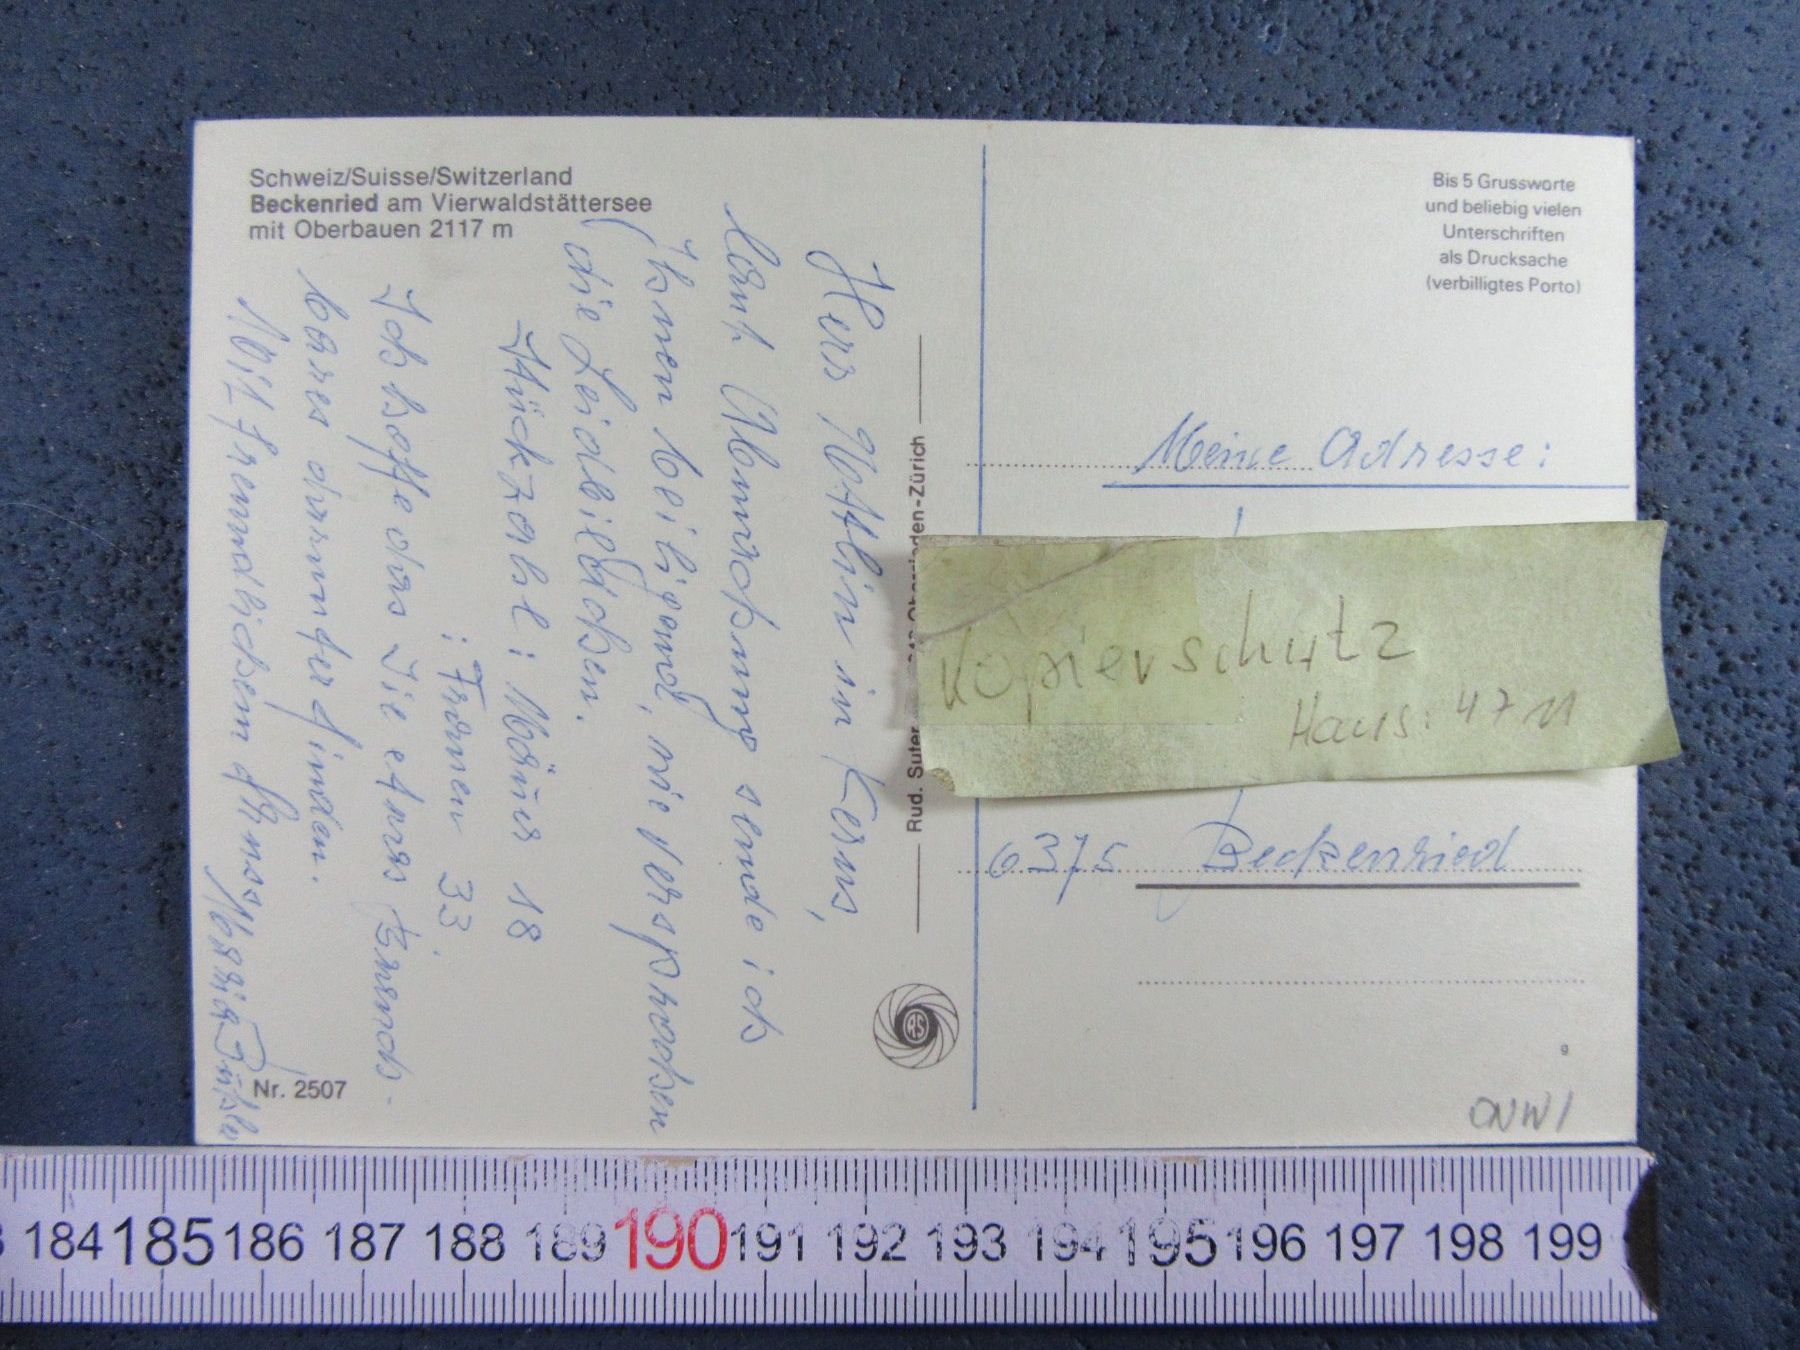 Schweiz/Suisse/Switzerland
Beckenried am Vierwaldstättersee
mit Oberbauen 2117 m
Herr in Kerns,
laut Abmachung sende ich
Ihnen beiligend, wie versprochen
(die Leidbildchen.
Stückzahl: Mäner 18
: Frauen 33
Ich hoffe das Sie etwas Brauch-
bares darunter finden.
Mit freundlichem Gruss Maria
Nr. 2507
Rud. Suter
-Zürich
RS
Bis 5 Grussworte
und beliebig vielen
Unterschriften
als Drucksache
(verbilligtes Porto)
Meine Adresse:
Kopierschutz
Haus: 4711
6375 Beckenried
9
184 185 186 187 188 189 190 191 192 193 194 195 196 197 198 199